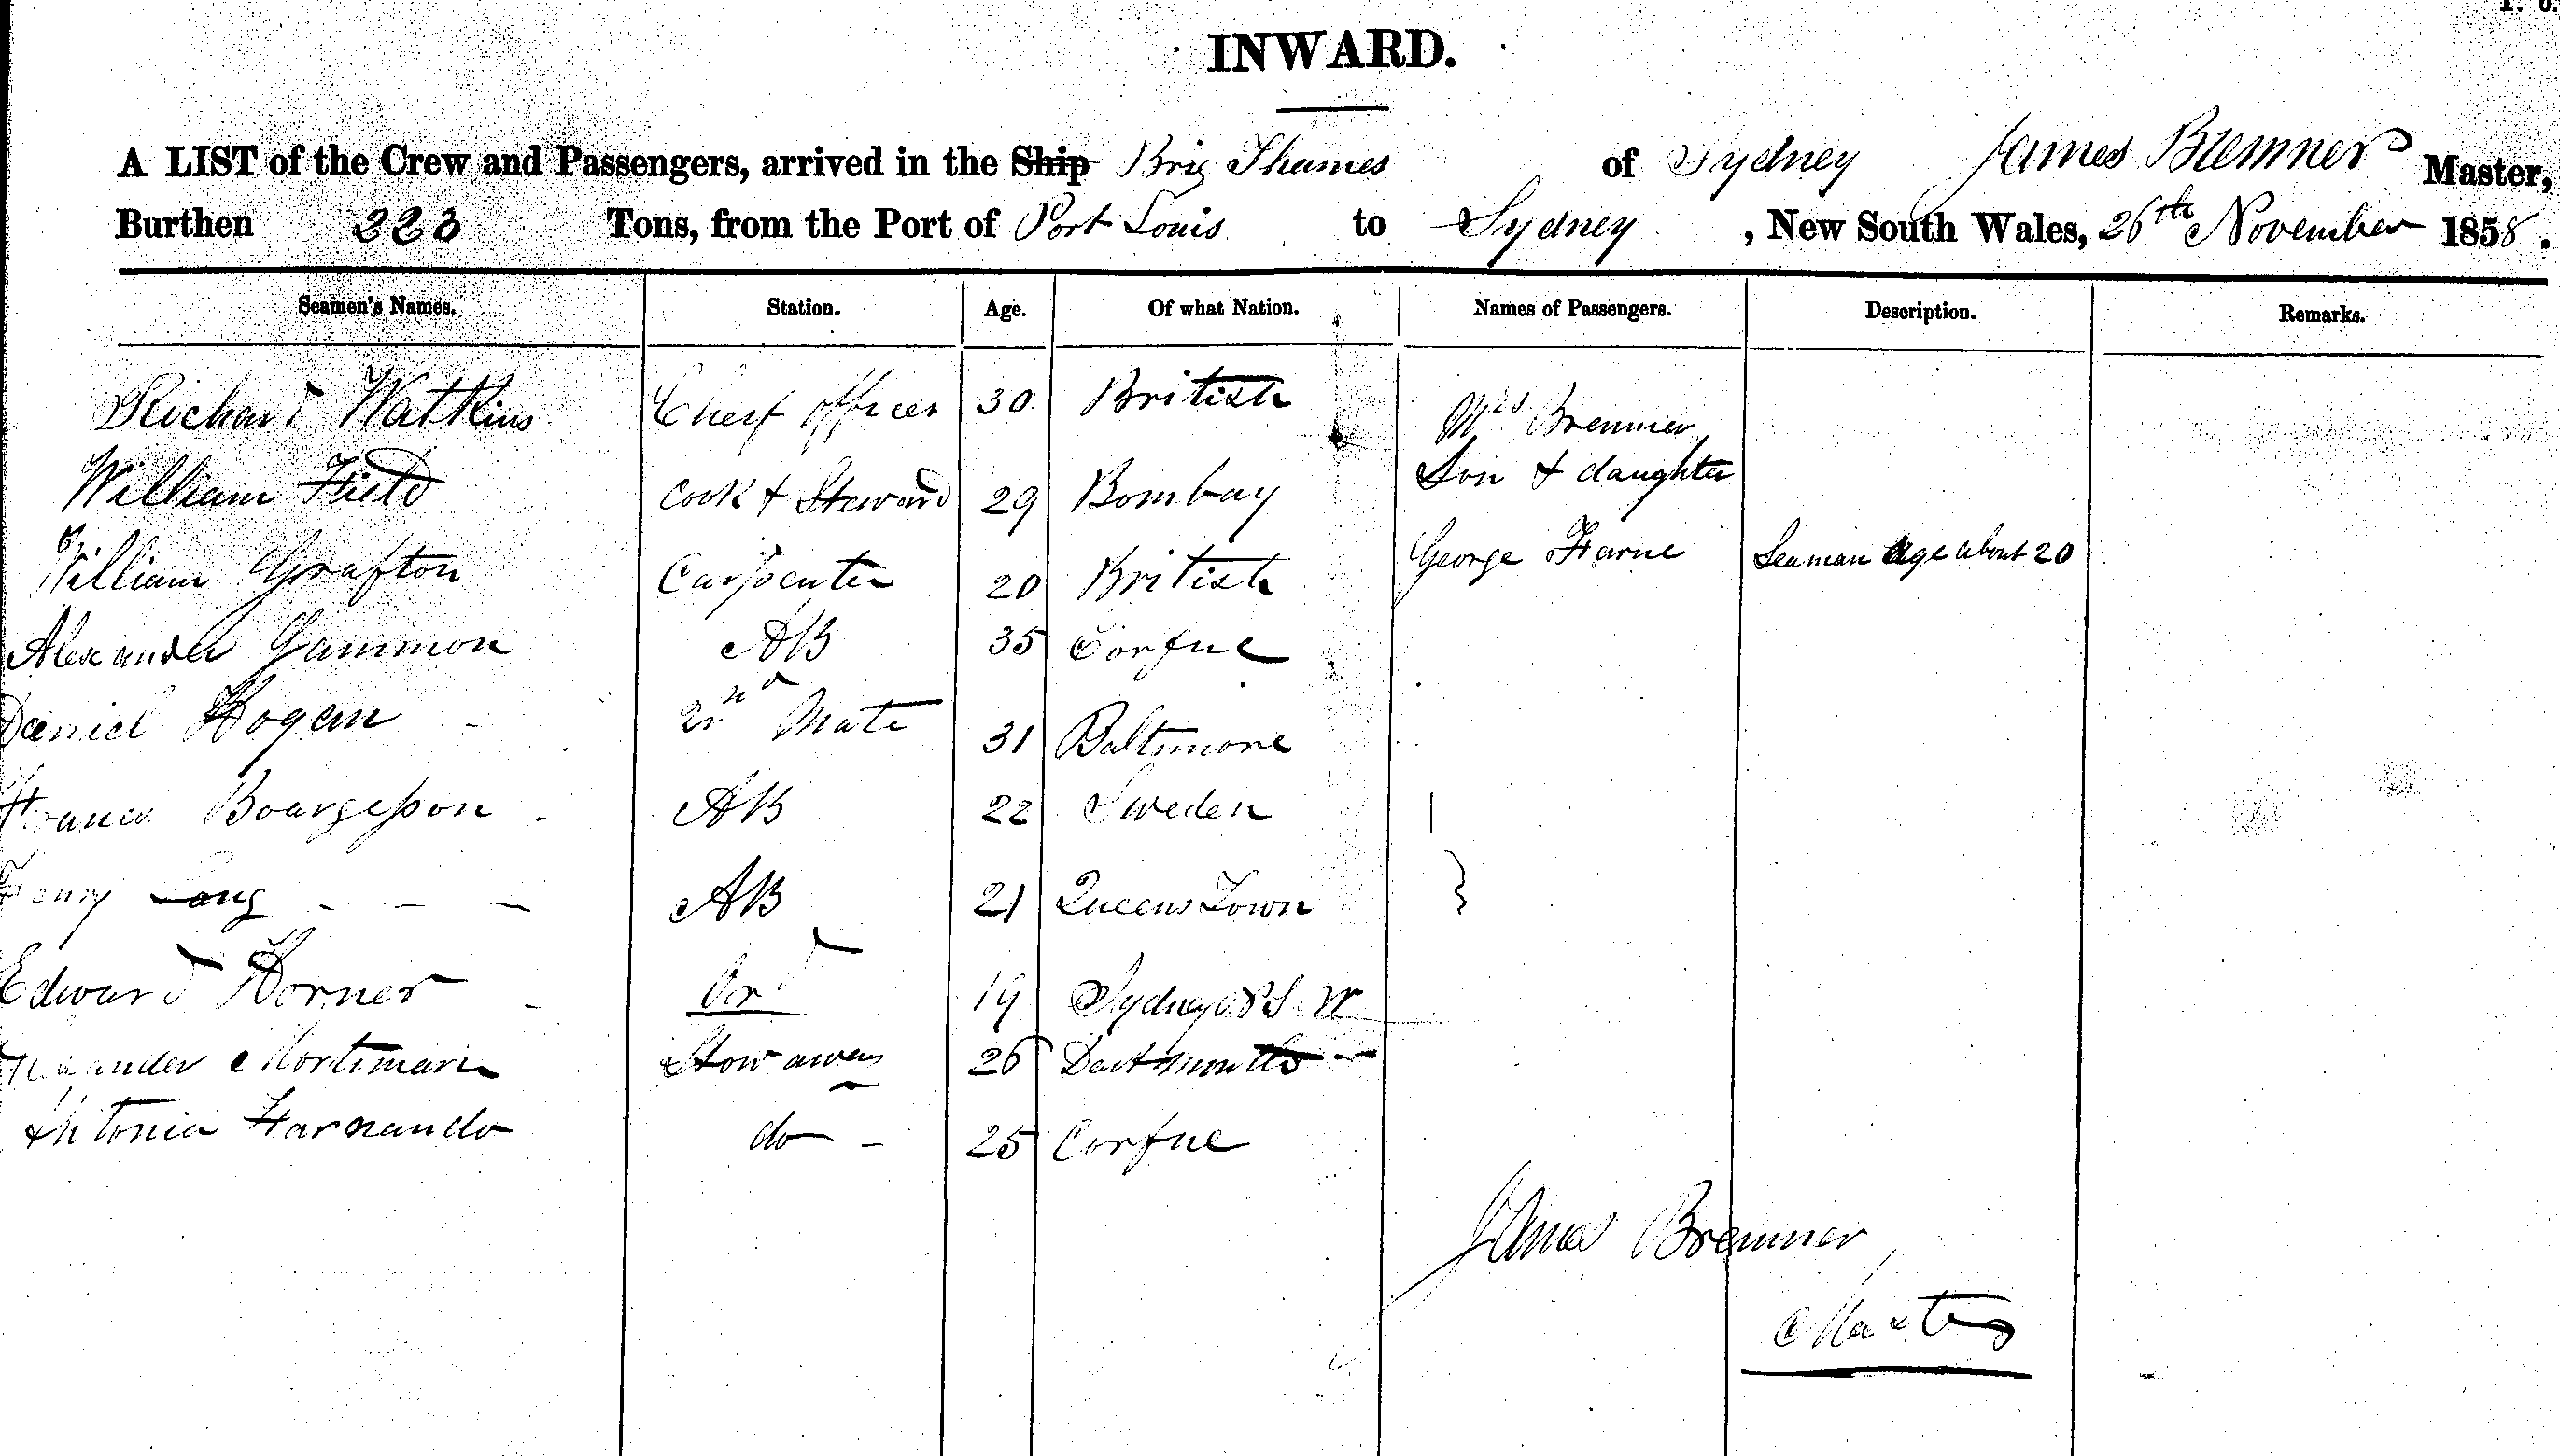 INWARD.
A LIST of the Crew and Passengers, arrived in the Ship Brig Thames of Sydney James Bremner Master,
Burthen 223 Tons, from the Port of Port Louis to Sydney, New South Wales, 26th November 1858.
Seamen's Names. Station. Age. Of what Nation. Names of Passengers. Description. Remarks.
Richard Watkins Chief Officer 30 British Mrs Bremner
William Field Cook & Steward 29 Bombay Son & daughter
William Grafton Carpenter 20 British George Farne Seaman age about 20
Alexander Gammon AB 35 Corfue
Daniel Hogan 2nd Mate 31 Baltimore
Bourgesson AB 22 Sweden
Henry Long AB 21 Queens Town
Edward Horner Ord 19 Sydney N S W
Mortimari Stow away 26 Dartmouth
Antonia Farnando do 25 Corfue
James Bremner
Master